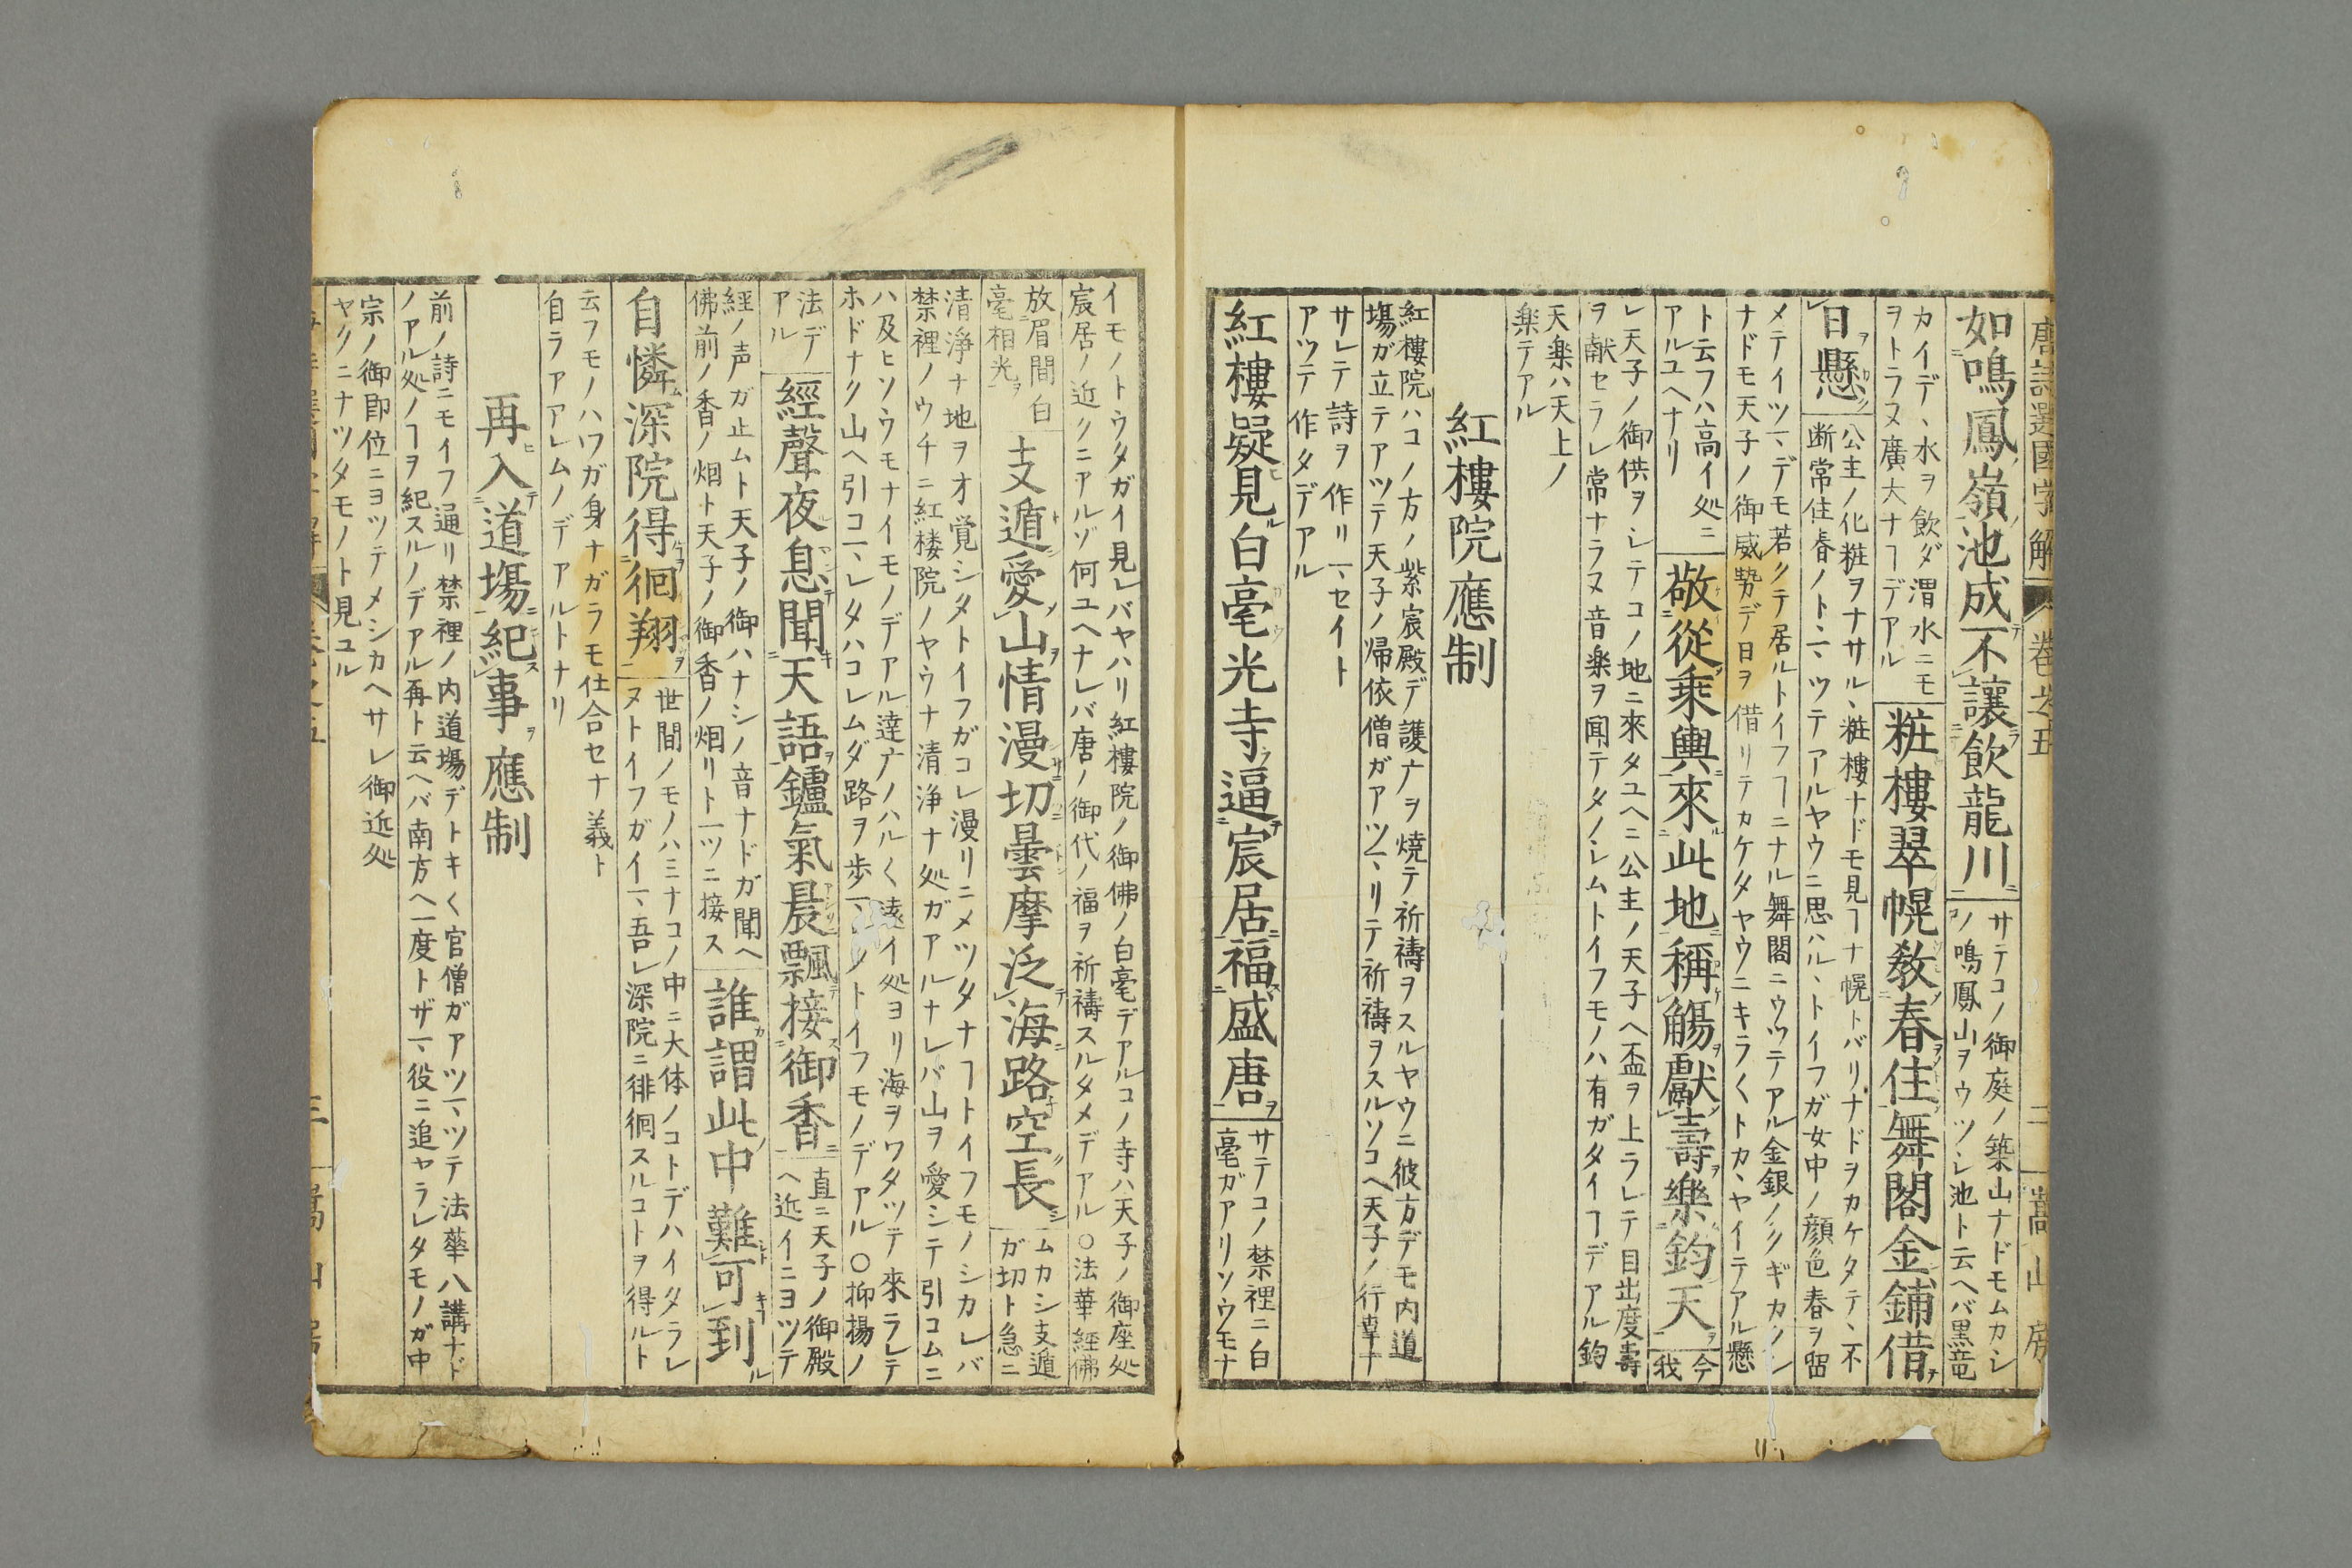 唐詩選國字解 卷之五 二 嵩山房
如鳴鳳嶺池成不讓飲龍川
サテコノ御庭ノ築山ナドモムカシ
ノ鳴鳳山ヲウツシ池ト云ヘバ黒竜
カイデ、水ヲ飲ダ渭水ニモ
ヲトラヌ廣大ナヿデアル
粧樓翠幌敎春住舞閣金鋪借
日懸
公主ノ化粧ヲナサル、粧樓ナドモ見ヿナ幌トバリナドヲカケタテ、不
断常住春ノトヾツテアルヤウニ思ハル、トイフガ女中ノ顔色春ヲ留
メテイツマデモ若クテ居ルトイフヿニナル舞閣ニウツテアル金銀ノクギカクシ
ナドモ天子ノ御威勢デ日ヲ借リテカケタヤウニキラくトカヾヤイテアル懸
ト云フハ高イ処ニ
アルユヘナリ
敬從乘輿來此地稱觴獻壽樂鈞天
今
我
レ天子ノ御供ヲシテコノ地ニ來タユヘニ公主ノ天子ヘ盃ヲ上ラレテ目出度壽
ヲ献セラレ常ナラヌ音楽ヲ聞テタノシムトイフモノハ有ガタイヿデアル鈞
天楽ハ天上ノ
楽テアル
紅樓院應制
紅樓院ハコノ方ノ紫宸殿デ護广ヲ焼テ祈禱ヲスルヤウニ彼方デモ内道
塲ガ立テアツテ天子ノ帰依僧ガアツマリテ祈禱ヲスルソコヘ天子ノ行幸ナ
サレテ詩ヲ作リマセイト
アツテ作タデアル
紅樓疑見白毫光寺逼宸居福盛唐
サテコノ禁裡ニ白
毫ガアリソウモナ
イモノトウタガイ見レバヤハリ紅樓院ノ御佛ノ白毫デアルコノ寺ハ天子ノ御座処
宸居ノ近クニアルゾ何ユヘナレバ唐ノ御代ノ福ヲ祈禱スルタメデアル○法華經佛
放眉間白
毫相光
支遁愛山情漫切曇摩泛海路空長
ムカシ支遁
ガ切ト急ニ
清浄ナ地ヲオ覚シタトイフガコレ漫リニメツタナヿトイフモノシカレバ
禁裡ノウチニ紅楼院ノヤウナ清浄ナ処ガアルナレバ山ヲ愛シテ引コムニ
ハ及ヒソウモナイモノデアル達广ノハルく遠イ処ヨリ海ヲワタツテ來ラレテ
ホドナク山ヘ引コマレタハコレムダ路ヲ歩マノトイフモノデアル○抑揚ノ
法デ
アル
經聲夜息聞天語鑪氣晨飄接御香
直ニ天子ノ御殿
ヘ近イニヨツテ
経ノ声ガ止ムト天子ノ御ハナシノ音ナドガ聞ヘ
佛前ノ香ノ烟ト天子ノ御香ノ烟リト一ツニ接ス
誰謂此中難可到
自憐深院得徊翔
世間ノモノハミナコノ中ニ大体ノコトデハイタラレ
ヌトイフガイマ吾レ深院ニ徘徊スルコトヲ得ルト
云フモノハワガ身ナガラモ仕合セナ義ト
自ラアアレムノデアルトナリ
再入道塲紀事應制
前ノ詩ニモイフ通リ禁裡ノ内道塲デトキく官僧ガアツマツテ法華八講ナド
ノアル処ノヿヲ紀スルノデアル再ト云ヘバ南方ヘ一度トザマ役ニ追ヤラレタモノガ中
宗ノ御即位ニヨツテメシカヘサレ御近処
ヤクニナツタモノト見ユル